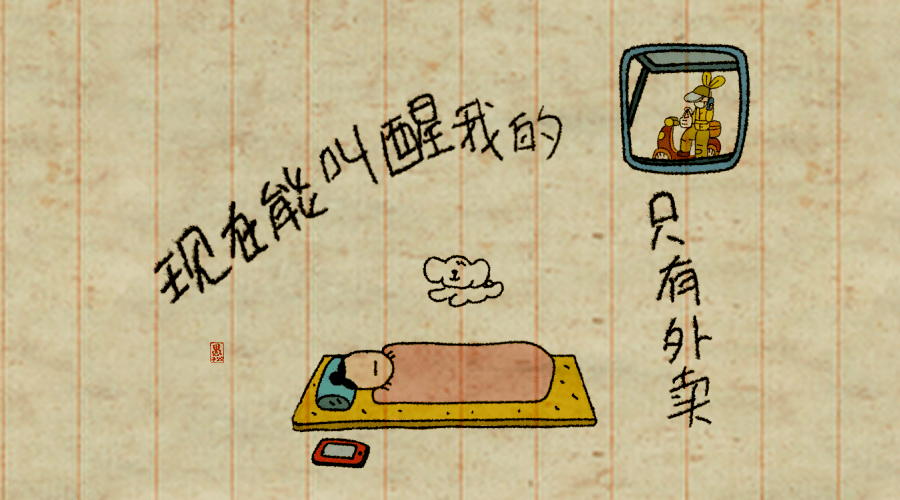 现在能叫醒我的
只有外卖